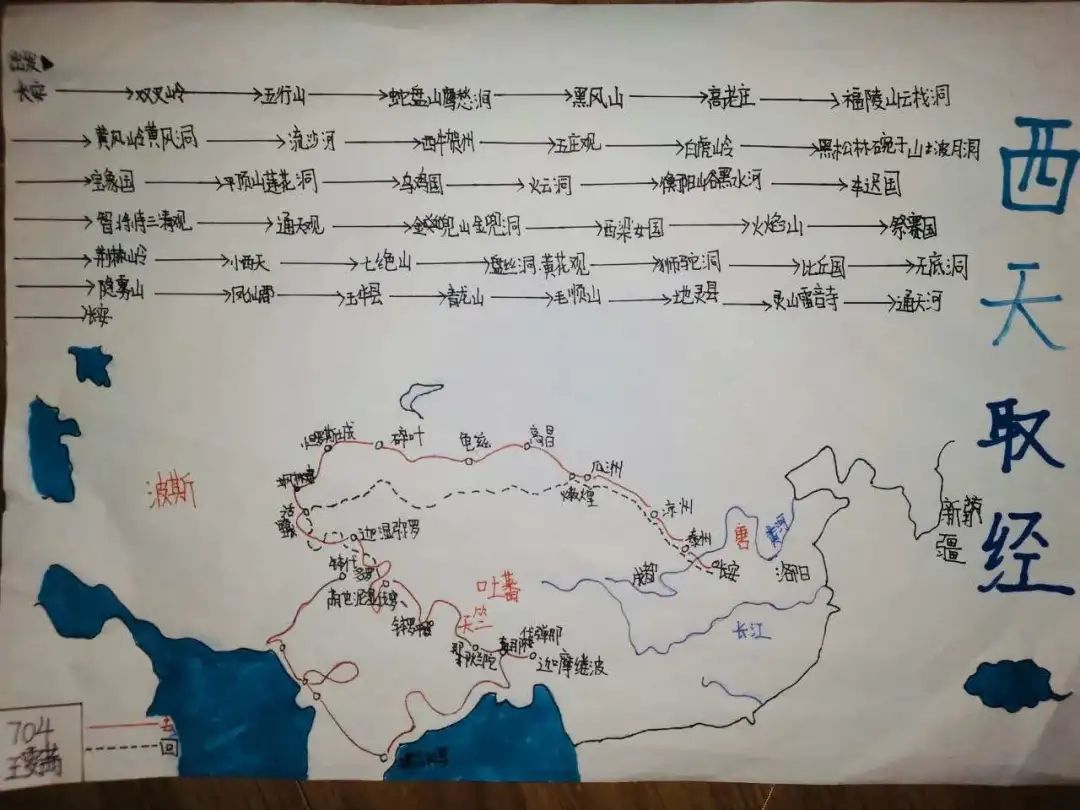 出发
长安 → 双叉岭 → 五行山 → 蛇盘山鹰愁涧 → 黑风山 → 高老庄 → 福陵山云栈洞
→ 黄风岭黄风洞 → 流沙河 → 西牛贺州 → 五庄观 → 白虎岭 → 黑松林碗子山波月洞
→ 宝象国 → 平顶山莲花洞 → 乌鸡国 → 火云洞 → 黑水河 → 车迟国
→ 三清观 → 通天观 → 兜山金兜洞 → 西梁女国 → 火焰山 → 祭赛国
→ 荆棘岭 → 小西天 → 七绝山 → 盘丝洞.黄花观 → 狮驼洞 → 比丘国 → 无底洞
→ 隐雾山 → 凤仙郡 → 玉华县 → 青龙山 → 毛颖山 → 地灵县 → 灵山雷音寺 → 通天河
→ 长安
西天取经
碎叶
龟兹
高昌
瓜洲
敦煌
波斯
活国
凉州
秦州
唐
黄河
新疆
长安
洛阳
成都
迦湿弥罗
吐蕃
天竺
长江
那烂陀
迦摩缕波
704
去
回